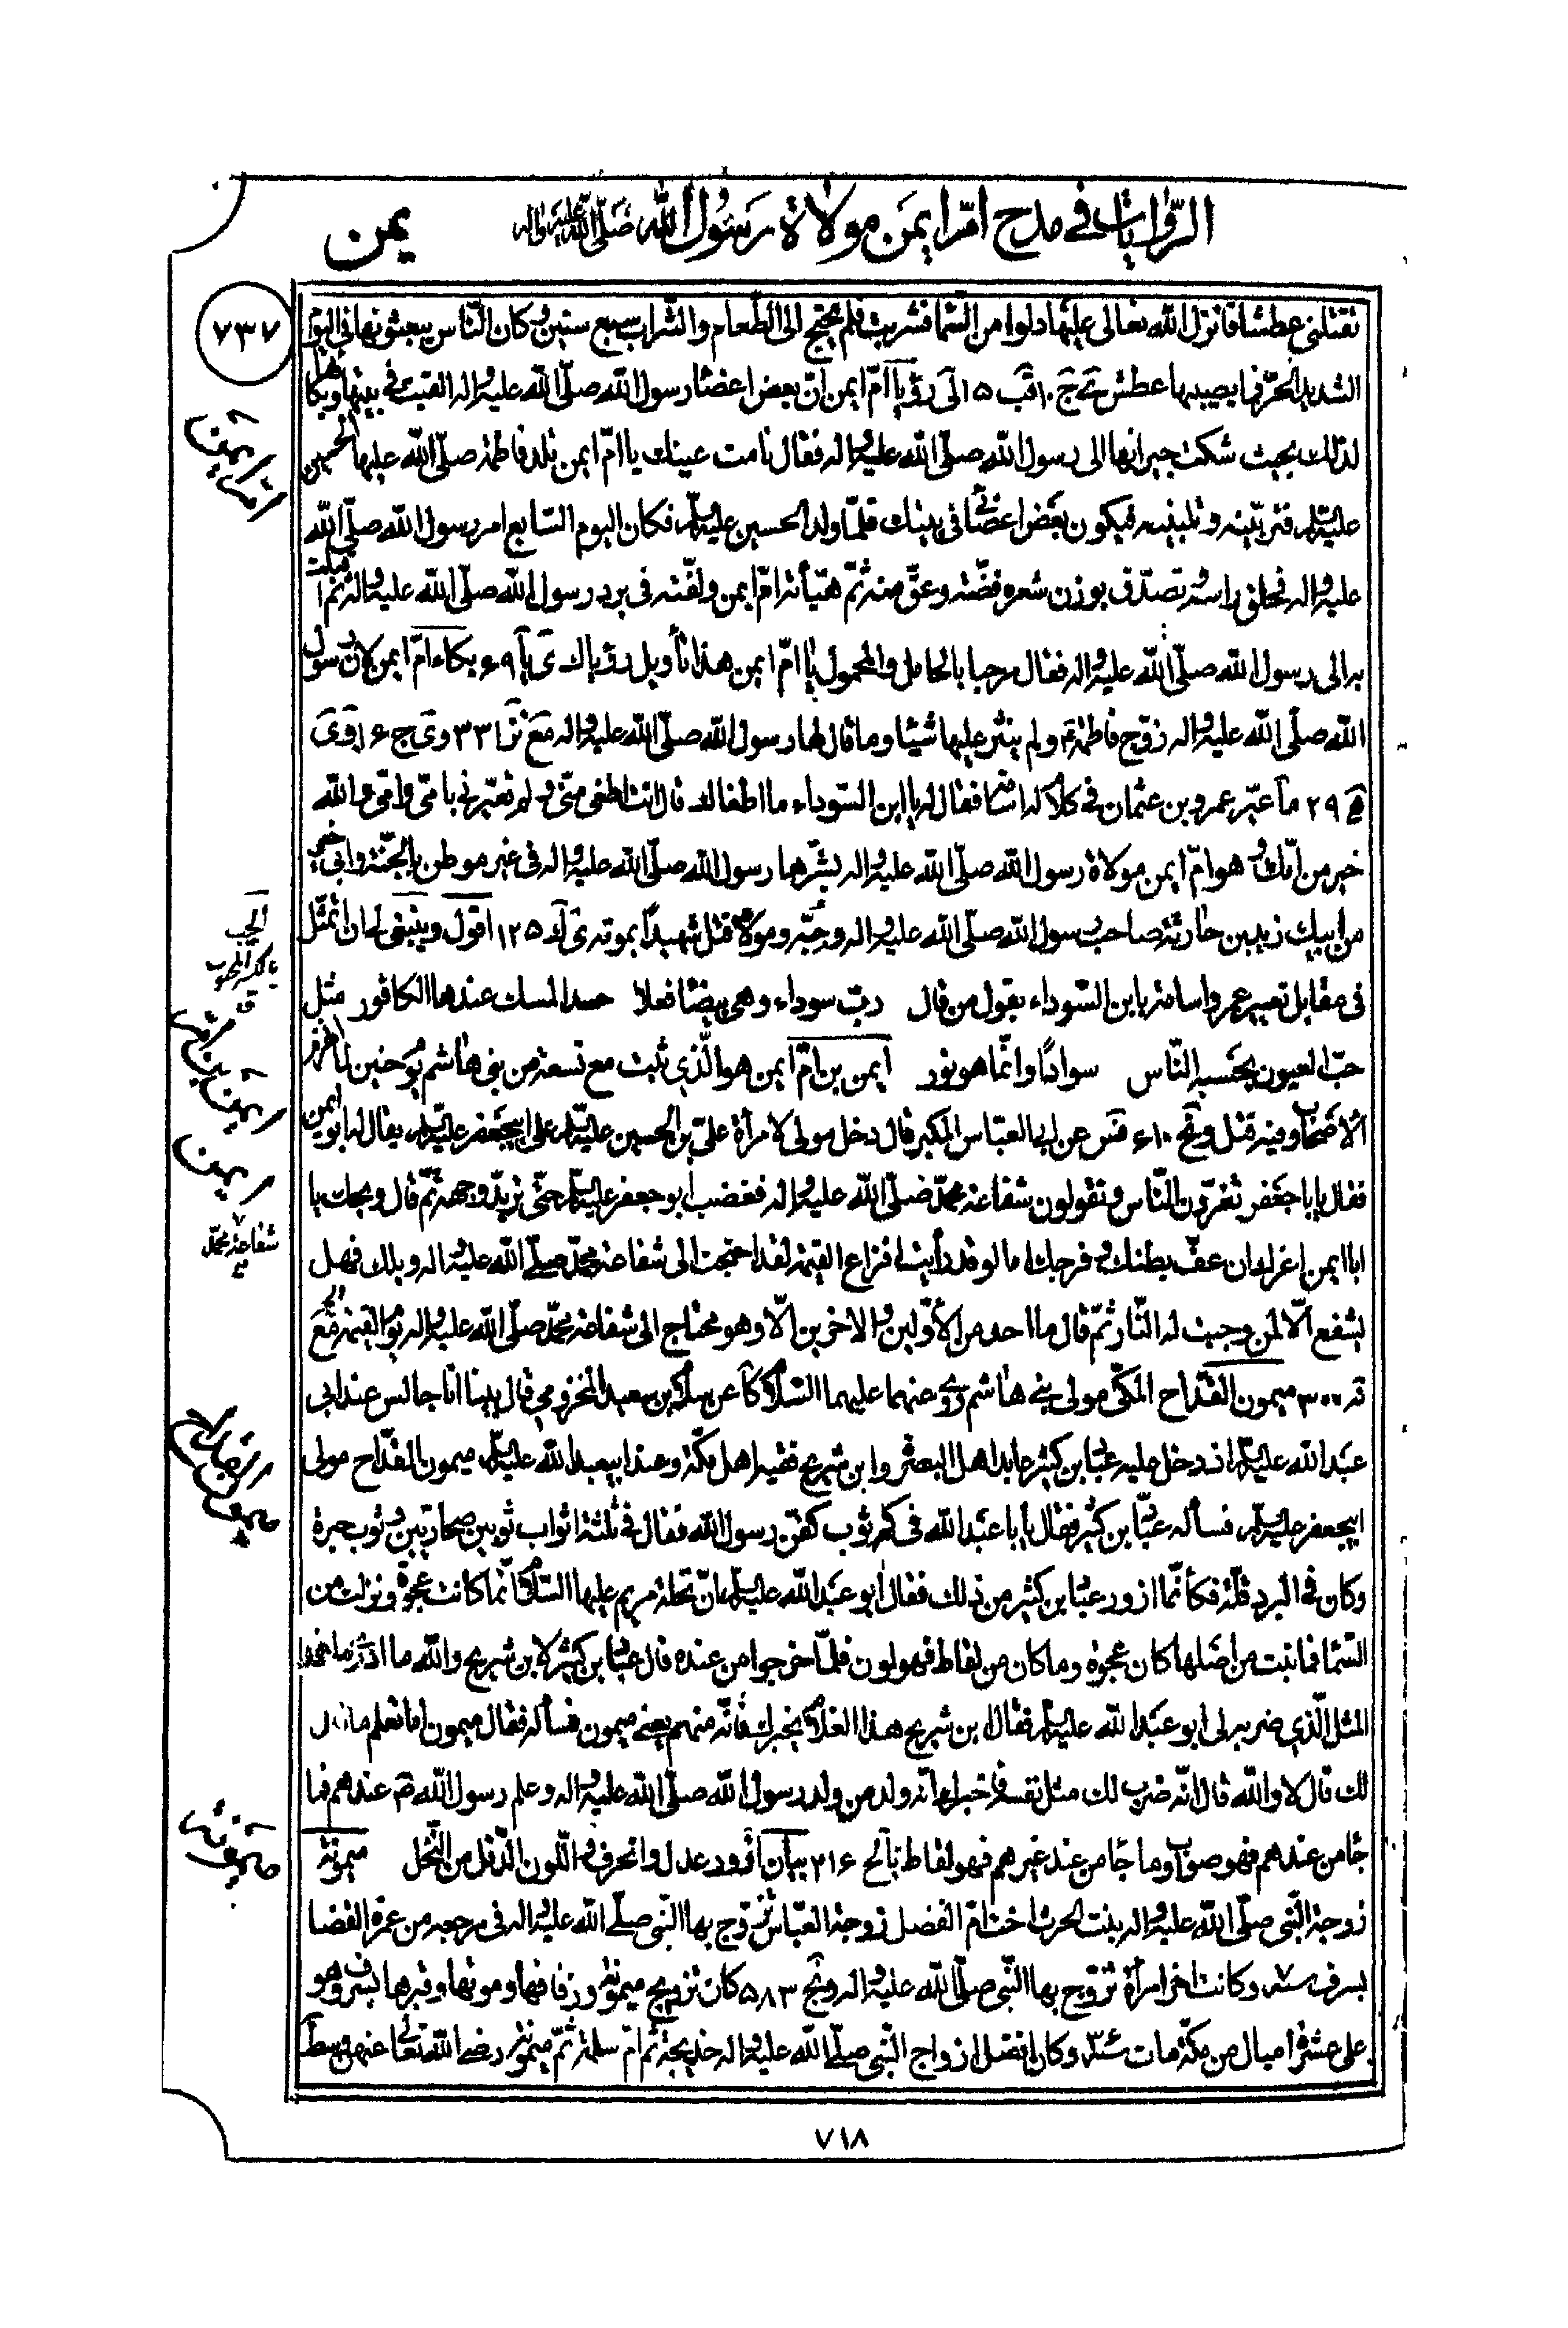 الرّوايات في مدح امّ ايمن مولاة رسول اللّه صلّى اللّه عليه واله
يمن
٧٣٧
تقتلني عطشا فانزل اللّه تعالى عليها دلوا من السّما فشربت فلم يحتج الى الطّعام والشّراب سبع سنين وكان النّاس يبعثونها في اليوم
الشديد الحرّ فما يصيبها عطش ١٠ ١٥ رؤيا امّ ايمن انّ بعض اعضا رسول اللّه صلّى اللّه عليه واله القيت في بيتها وبكاها
لذلك بحيث شكت جيرانها الى رسول اللّه صلّى اللّه عليه واله فقال نامت عينك يا امّ ايمن تلد فاطمة صلّى اللّه عليها الحسين
عليه السلم فتربّينه وتلبّينه فيكون بعض اعضائي في بيتك فلمّا ولد الحسين عليه السلم فكان اليوم السّابع امر رسول اللّه صلّى اللّه
عليه واله فحلق راسه وتصدّق بوزن شعره فضّة وعقّ عنه ثمّ هيّأته امّ ايمن ولفّته في برد رسول اللّه صلّى اللّه عليه واله ثم اقبلت
به الى رسول اللّه صلّى اللّه عليه واله فقال مرحبا بالحامل والمحمول يا امّ ايمن هذا تأويل رؤياك ى يا ٦٩ بكاء امّ ايمن لان رسول
اللّه صلّى اللّه عليه واله زوّج فاطمة ولم ينثر عليها شيئا وما قال لها رسول اللّه صلّى اللّه عليه واله ٣٣
٢٩ عيّر عمرو بن عثمان في كلام له اسامة فقال له يا ابن السّوداء ما اطغاك قال انت اطغى منّي ولم تعيّرني بامّي وامّي واللّه
خير من امّك وهو امّ ايمن مولاة رسول اللّه صلّى اللّه عليه واله بشّرها رسول اللّه صلّى اللّه عليه واله في غير موطن بالجنّة وابي خير
من ابيك زيد بن حارثة صاحب رسول اللّه صلّى اللّه عليه واله وحبّه ومولاه قتل شهيدا بموته ١٢٥ اقول وينبغي له ان اتمثّل
في مقابل تعيير عمرو اسامة بابن السّوداء بقول من قال ربّ سوداء وهي بيضا فعلا حسد المسك عندها الكافور مثل
حبّ العيون يحسبه النّاس سوادا وانّما هو نور ايمن بن امّ ايمن هو الّذي ثبت مع تسعة من بني هاشم يوم حنين لمّا انهزم
الاصحاب وفيه قتل ١٠٦ عن ابي العبّاس المكبر قال دخل مولى لامرأة عليّ بن الحسين عليه السلم على ابيجعفر عليه السلم يقال له ابو ايمن
فقال يابا جعفر تغرّون النّاس وتقولون شفاعة محمّد صلّى اللّه عليه واله فغضب ابو جعفر عليه السلم حتّى تربّد وجهه ثمّ قال ويحك يا
ابا ايمن اغرّك ان عفّ بطنك وفرجك اما لو قد رأيت افزاع القيمة لقد احتجت الى شفاعة محمّد صلّى اللّه عليه واله ويلك فهل
يشفع الّا لمن وجبت له النّار ثمّ قال ما احد من الاوّلين والاخرين الّا وهو محتاج الى شفاعة محمّد صلّى اللّه عليه واله يوم القيمة
٣٠٠ ميمون القدّاح المكّي مولى بني هاشم روى عنهما عليهما السّلام عن سلام بن سعيد المخزومي قال بينا انا جالس عند ابي
عبد اللّه عليه السلم اذ دخل عليه عبّاد بن كثير عابد اهل البصرة وابن شريح فقيه اهل مكّة وعند ابيعبد اللّه عليه السلم ميمون القدّاح مولى
ابيجعفر عليه السلم فسأله عبّاد بن كثير فقال يا ابا عبد اللّه في كم ثوب كفّن رسول اللّه فقال في ثلثة اثواب ثوبين صحاريّين وثوب حبرة
وكان في البرد قلّة فكأنّما ازورّ عبّاد بن كثير من ذلك فقال ابو عبد اللّه عليه السلم انّ نخلة مريم عليها السّلام انّما كانت عجوة ونزلت من
السّما فما نبت من اصلها كان عجوة وما كان من لقاط فهو لون فلمّا خرجوا من عنده قال عبّاد بن كثير لابن شريح واللّه ما ادري ما هذا
المثل الّذي ضربه لي ابو عبد اللّه عليه السلم فقال ابن شريح هذا الغلام يخبرك فانّه منهم يعني ميمون فسأله فقال ميمون اما تعلم ما قال
لك قال لا واللّه قال انّه ضرب لك مثل نفسه فاخبرك انّه ولد من ولد رسول اللّه صلّى اللّه عليه واله وعلم رسول اللّه ص عندهم فما
جا من عندهم فهو صواب وما جا من عند غيرهم فهو لقاط ٢١٦ بيان ازورّ عدل وانحرف واللّون الدّقل من النّخل ميمونة
زوجة النّبي صلّى اللّه عليه واله بنت الحرث اخت امّ الفضل زوجة العبّاس تزوّج بها النّبي صلّى اللّه عليه واله في مرجعه من عمرة القضا
بسرف سنة ٧ وكانت اخر امرأة تزوّج بها النّبي صلّى اللّه عليه واله ٥٨٣ كان تزويج ميمونة وزفافها وموتها وقبرها بسرف وهو
على عشرة اميال من مكّة مات وكان افضل ازواج النّبي صلّى اللّه عليه واله خديجة ثم امّ سلمة ثمّ ميمونة رضي اللّه تعالى عنهن
امّ ايمن
الحبّ
بالكسر المحبوب
ق
ايمن بن امّ
ايمن
ايمن
شفاعة محمّد
ص
ميمون القدّاح
ميمونة
٧١٨